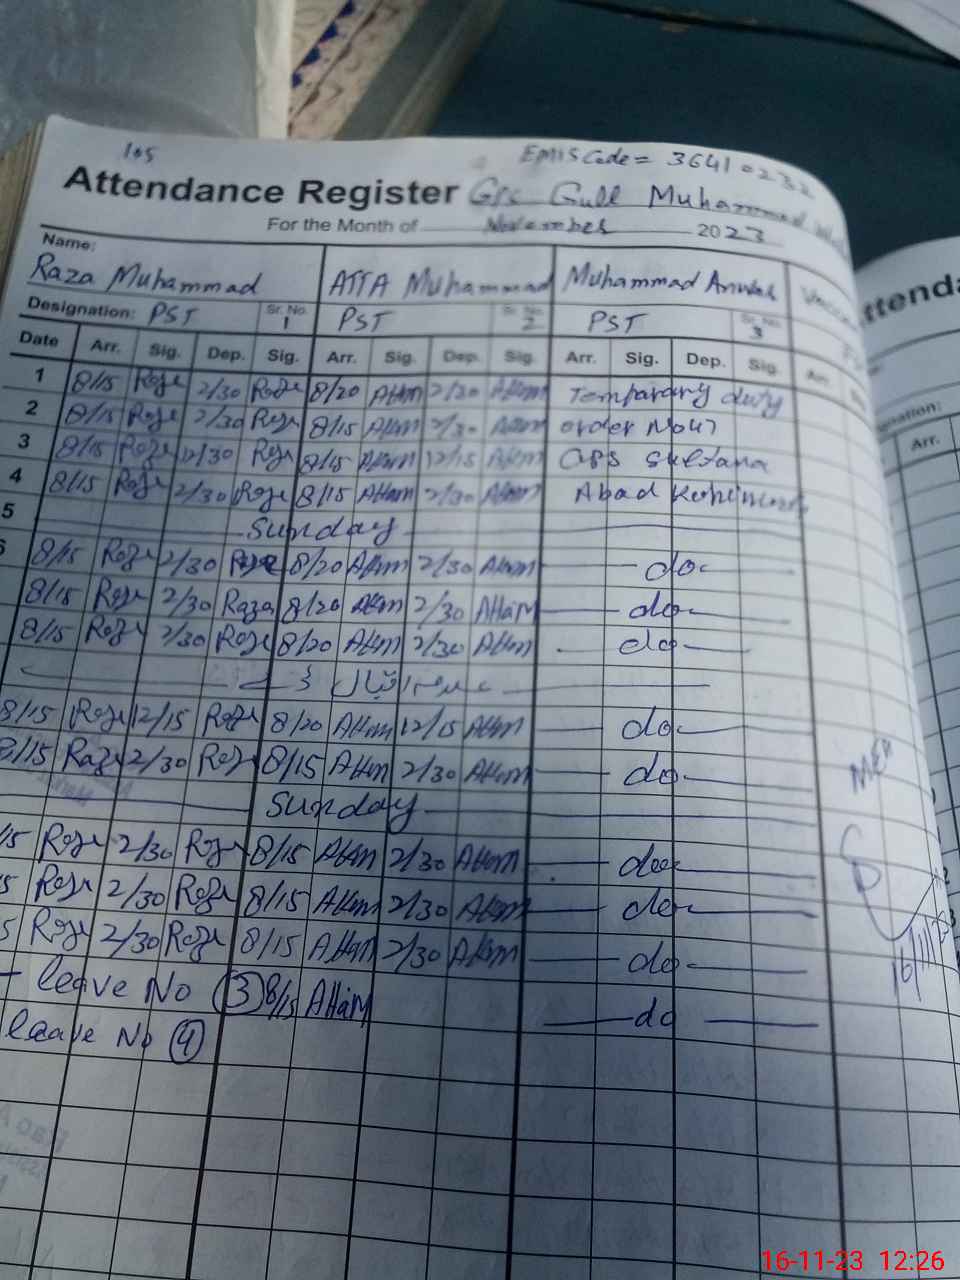 105
EMIS Code = 36410232
Attendance Register Gull Muhammad
For the Month of November 2023
Name:
Raza Muhammad ATTA Muhammad Muhammad Anwar
Designation: PST Sr. No. 1 PST Sr. No. 2 PST Sr. No. 3
Date Arr. Sig. Dep. Sig. Arr. Sig. Dep. Sig. Arr. Sig. Dep. Sig. Arr.
1 8/15 Roze 2/30 Roze 8/20 Attam 2/30 Attam Temparary duty
2 8/15 Roze 2/30 Roze 8/15 Attam 2/30 Attam order No
3 8/15 Roze 12/30 Roze 8/15 Attam 12/15 Attam GPS Sultana
4 8/15 Roze 2/30 Roze 8/15 Attam 2/30 Attam Abad
5 Sunday
6 8/15 Roze 2/30 8/20 Attam 2/30 Attam do
8/15 Roze 2/30 Raza 8/20 Attam 2/30 AttaM do
8/15 Roze 2/30 Roze 8/20 Attam 2/30 Attam do
اقبال ڈے
8/15 Roze 12/15 Roze 8/20 Attam 12/15 Attam do
8/15 Raze 2/30 Roze 8/15 Attam 2/30 Attam do
Sunday
/15 Roze 2/30 Roze 8/15 Attam 2/30 Attam do
5 Roze 2/30 Roze 8/15 Attam 2/30 Attam do
5 Roze 2/30 Roze 8/15 Attam 2/30 Attam do
leave No 3 8/15 AttaM do
leave No 4
MEA
16/11/23
Attenda
Designation:
Arr.
16-11-23 12:26